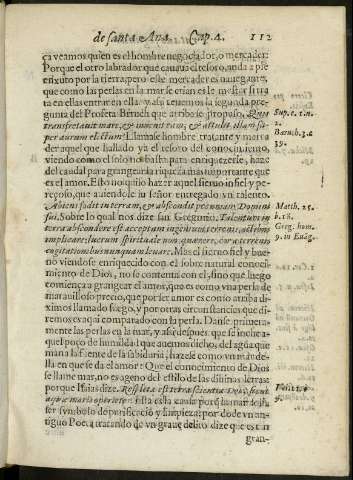 de santa Ana. Cap. 4. 112
ça veamos quien es el hombre negociador, o mercader:
Porque el otro labrador que cauaua el tesoro, anda a pie
enxuto por la tierra, pero este mercader es nauegante,
que como las perlas en la mar se crian es le menester
ta en ellas entrar en ella: y assi tenemos la segunda pre-
gunta del Profeta Baruch que arriba se propuso. Quis
transfretauit mare, & inuenit eam, & attulit illam su-
per aurum electum? Llamase hombre, tratante y merca
der aquel que hallado ya el tesoro del conocimiento,
viendo como el solo no basta para enriquezerle, haze
del caudal para grangear la riqueza mas importante que
es el amor. Esto no quiso hazer aquel sieruo infiel y pe-
reçoso, que a auiendole su señor entregado vn talento.
Abiens fodit in terram, & abscondit pecuniam Domini
sui. Sobre lo qual nos dize san Gregorio. Talentum in
terra abscondere est acceptum ingenium terrenis actibus
implicare, lucrum spirituale non quærere, cor a terrenis
cogitationibus nunquam leuare. Mas el sieruo fiel y bue-
no viendose enriquecido con el sobre natural conoci-
miento de Dios, no se contenta con el, sino que luego
comiença a grangear el amor, que es como vna perla de
marauilloso precio, que por ser amor es como arriba di-
ximos llamado fuego, y por otras circunstancias que di-
remos es aqui comparado con la perla. Danse primera-
mente las perlas en la mar, y assi despues que se inche a-
quel poço de humildad que auemos dicho, del agua que
mana la fuente de la sabiduria, hazese como vn mar de-
lla en que se da el amor: Que el conocimiento de Dios
se llame mar, no es ageno del estilo de las diuinas letras:
porque Isaias dize. Repleta est terra scientia Dei, sicut
aquæ maris operientes. Esta es la causa porque la mar
ser symbolo de purificació y limpieza: por dóde vn an-
tiguo Poeta tratando de vn graue delito dize que es tan
gran-
Sup. c. 1. n.
2.
Baruch. 3. c
39.
Matth. 25.
b. 18.
Greg. hom.
9. in Euāg.